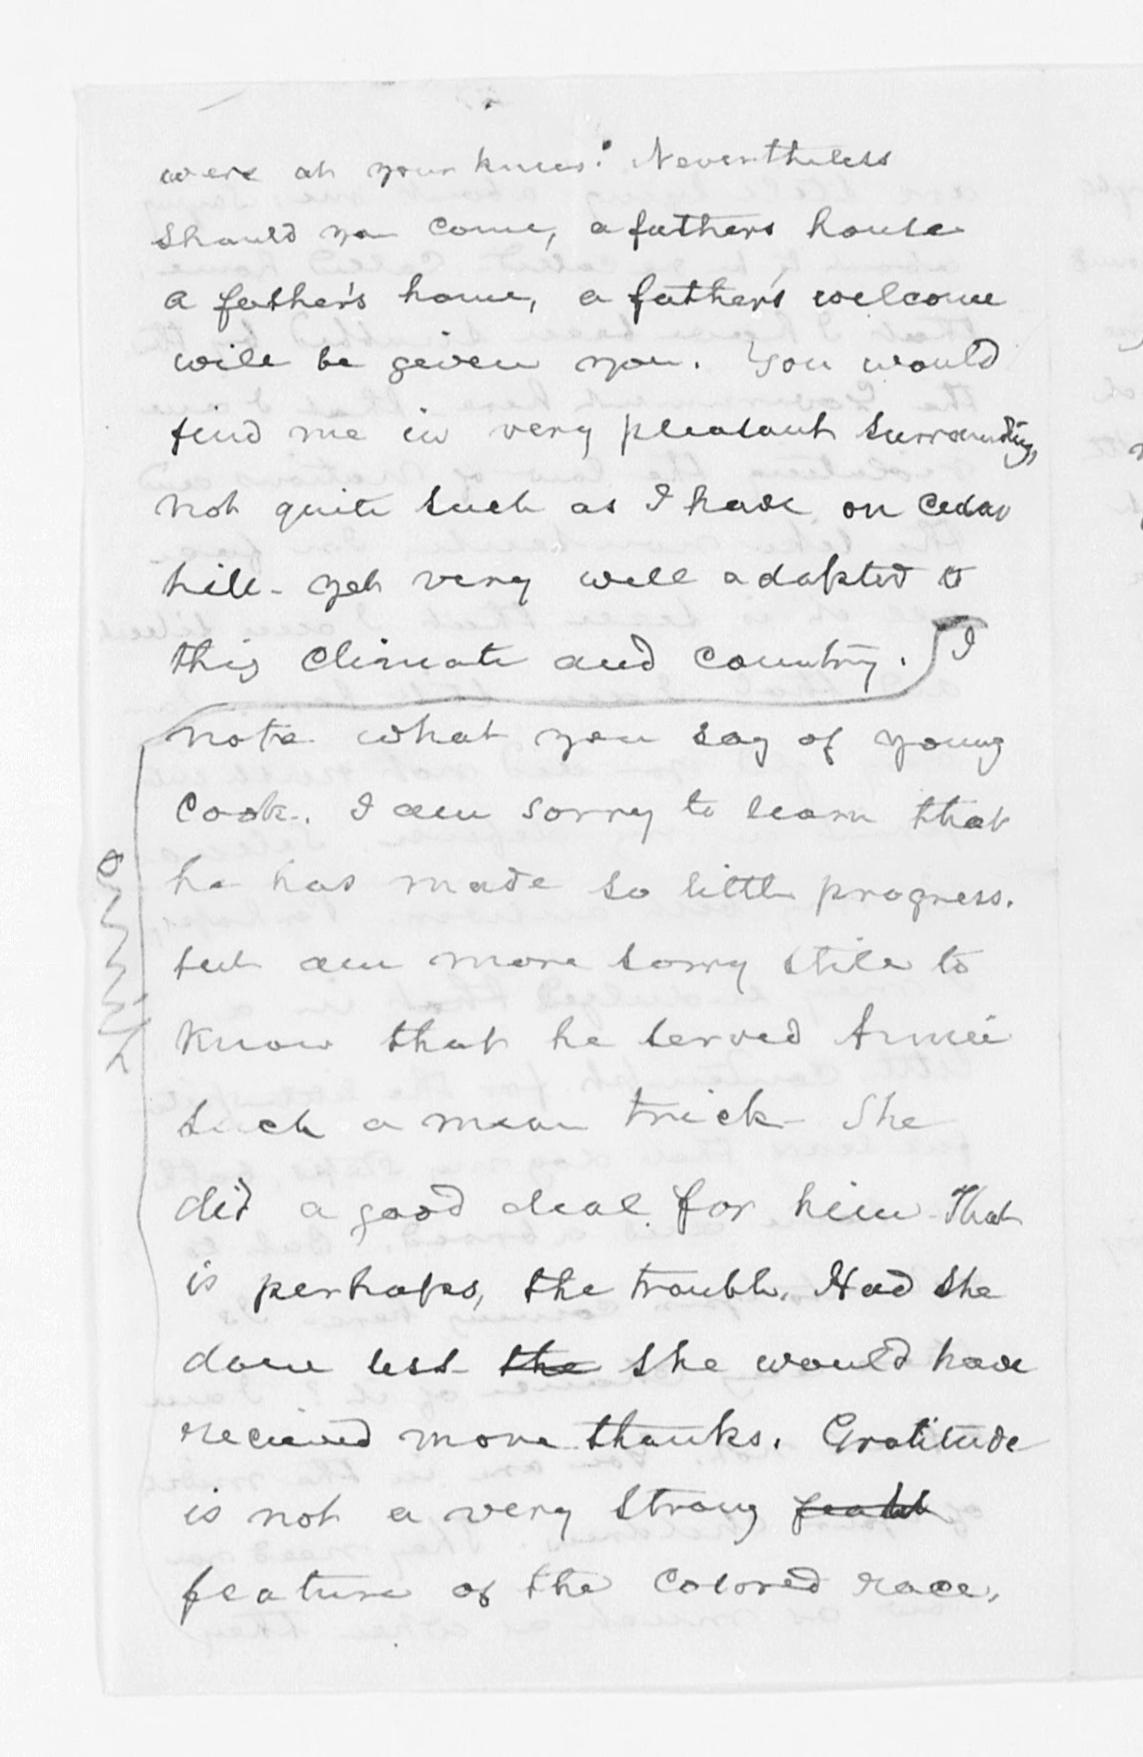 were at your knees. Nevertheless
should you come, a fathers house
a father's home, a father's welcome
will be given you. You would
find me in very pleasant surroundings,
not quite such as I have on Cedar
hill - yet very well adapted to
this climate and country. I
note what you say of young
Cook. I am sorry to learn that
he has made so little progress.
but am more sorry still to
know that he served Annie
such a mean trick - She
did a good deal for him - That
is perhaps, the trouble. Had she
done less the she would have
recieved more thanks. Gratitude
is not a very strong
feature of the Colored race.